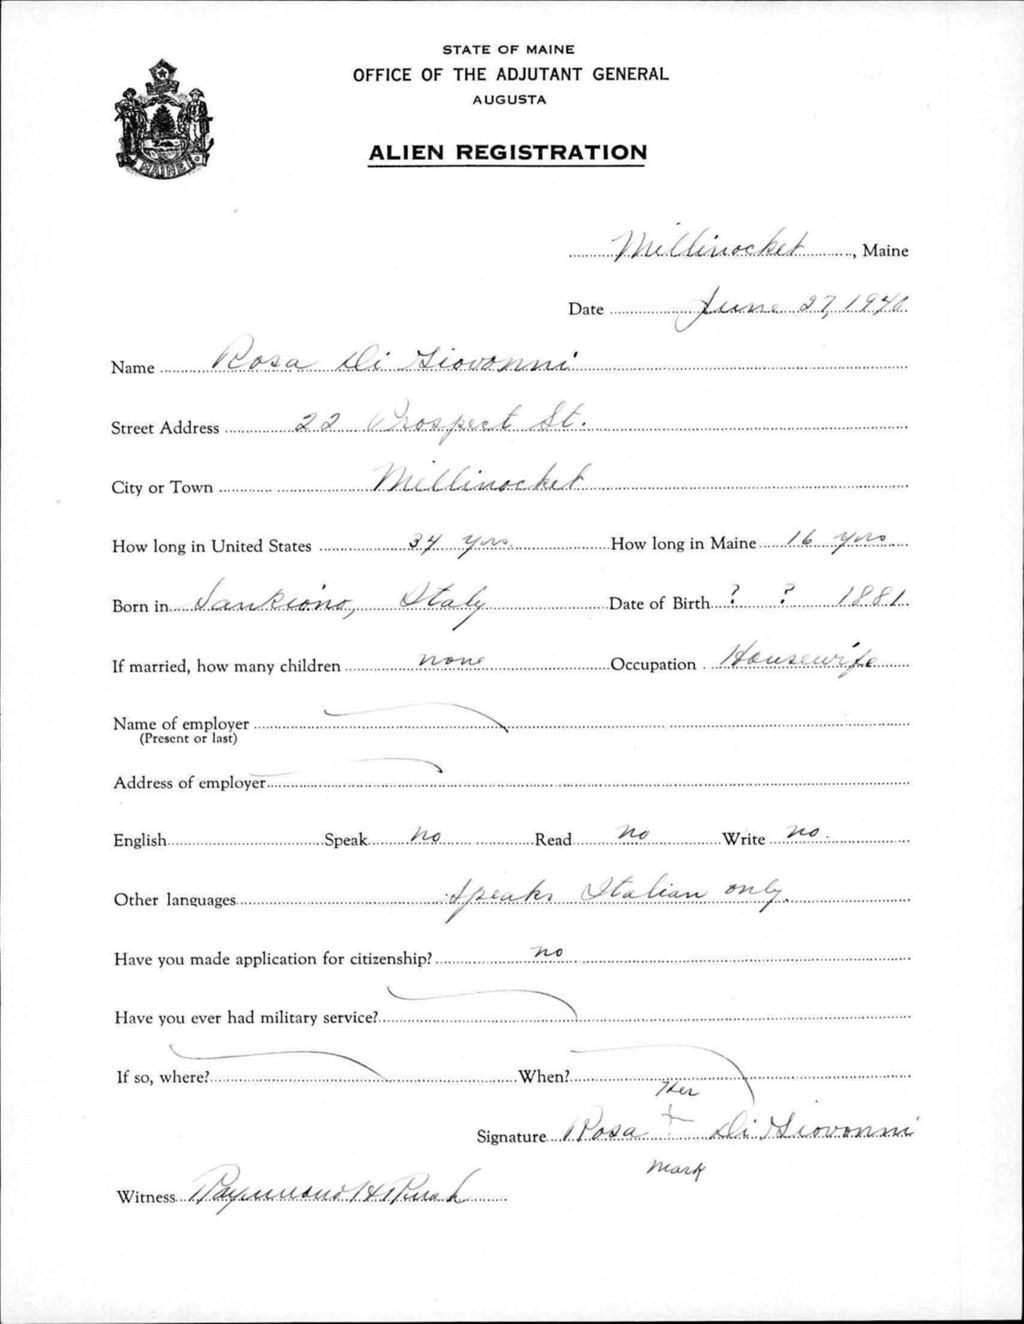 STATE OF MAINE
OFFICE OF THE ADJUTANT GENERAL
AUGUSTA
ALIEN REGISTRATION
MAINE
Millinocket, Maine
Date June 27, 1940
Name Rosa Di Giovonni
Street Address 22 Prospect St.
City or Town Millinocket
How long in United States 34 yrs. How long in Maine 16 yrs
Born in Italy Date of Birth ? ? 1881
If married, how many children none Occupation Housewife
Name of employer
(Present or last)
Address of employer
English Speak no Read no Write no.
Other languages Speaks Italian only.
Have you made application for citizenship? no
Have you ever had military service?
If so, where? When?
Her
Signature Rosa + Di Giovonni
mark
Witness Raymond H Rush